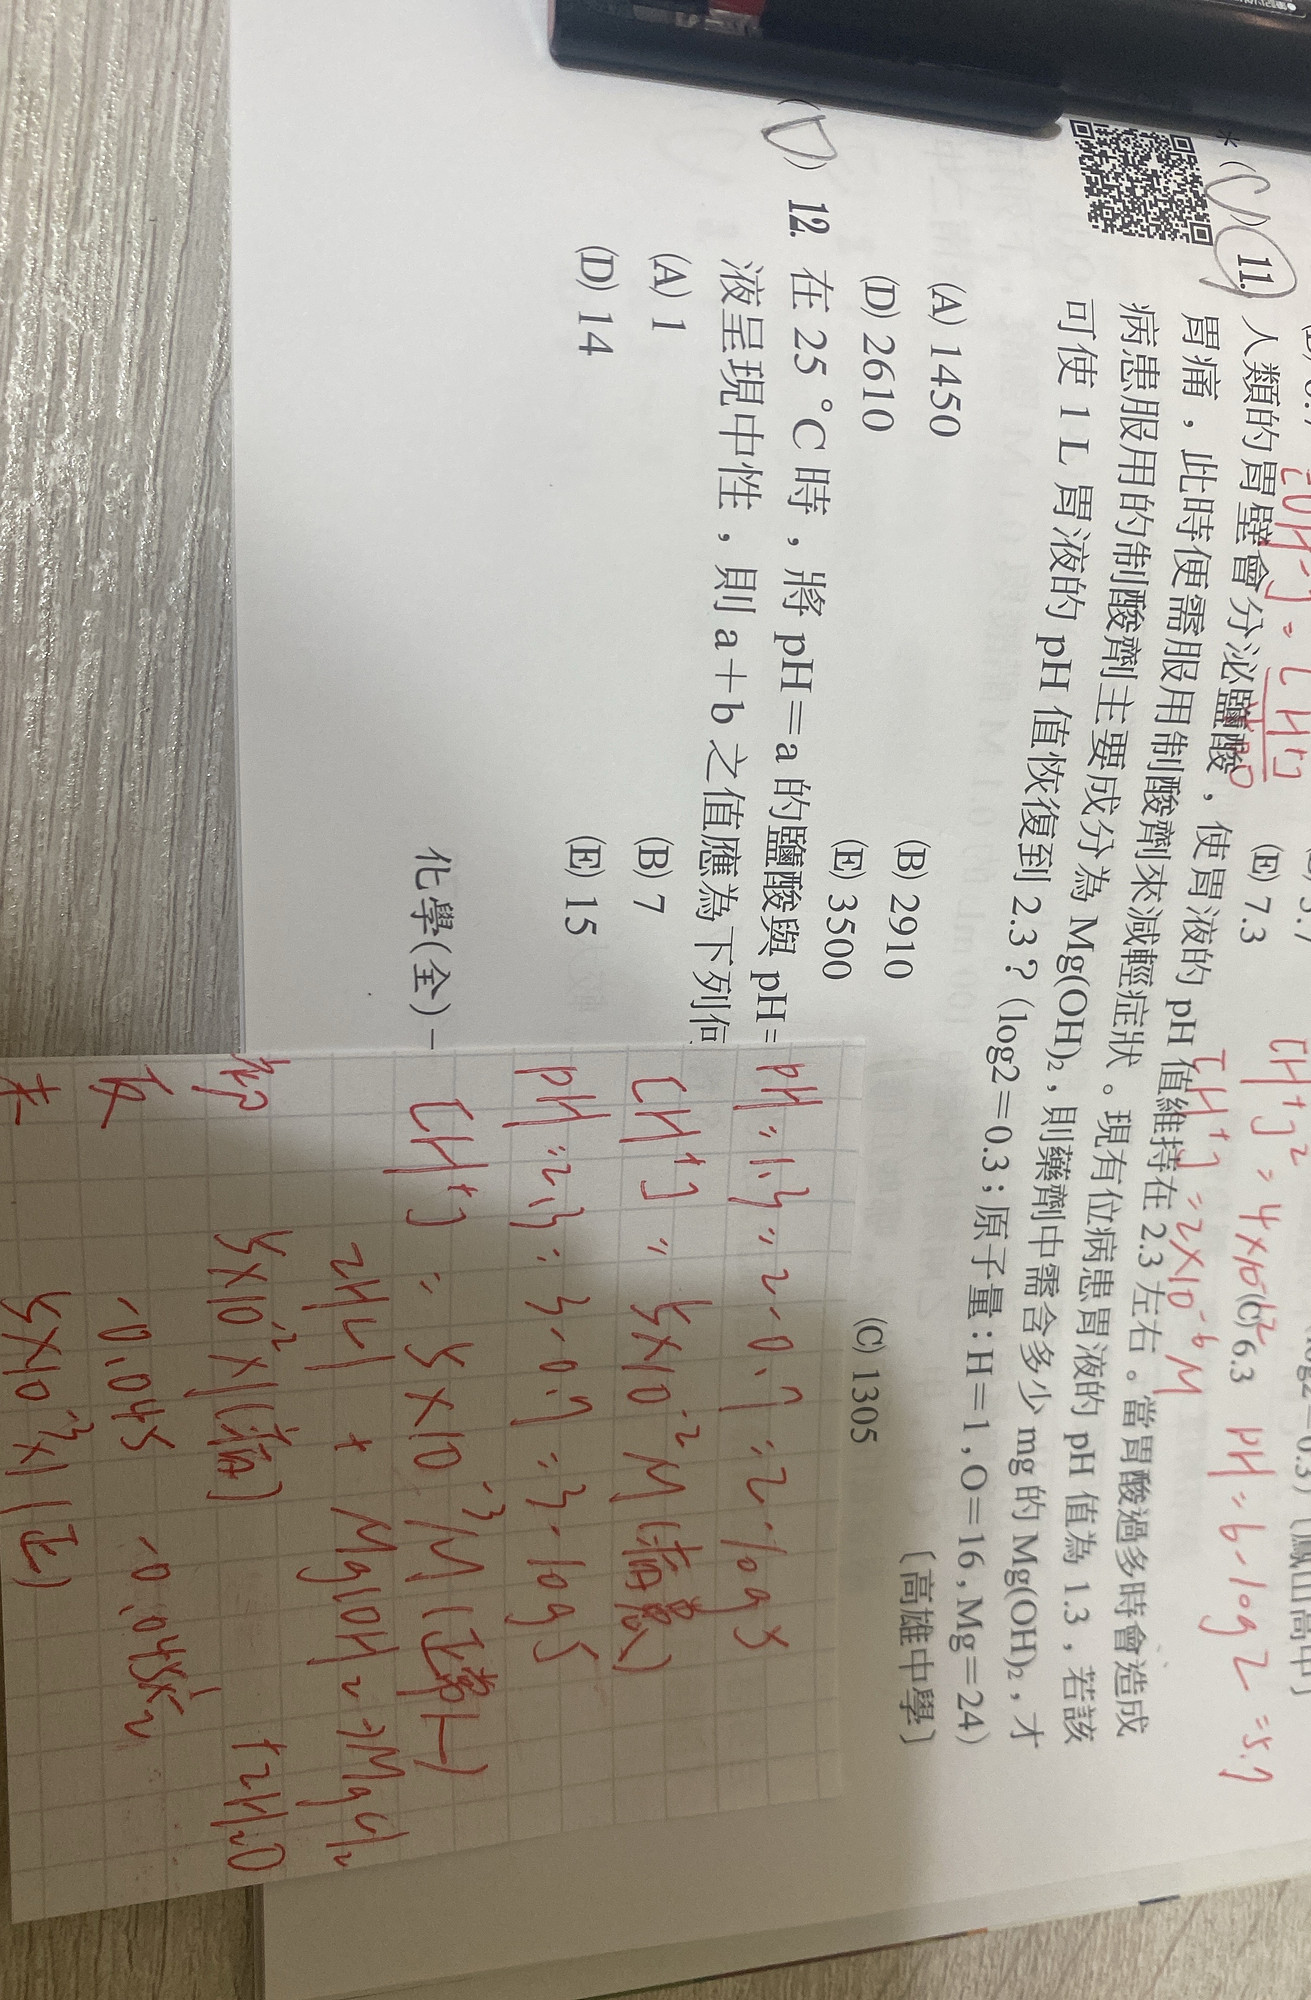 (E) 7.3
[H⁺]² = 4×10⁻¹²
(C) 6.3
pH = 6 - log 2 = 5.7
[H⁺] = 2×10⁻⁶ M
*(C) 11. 人類的胃壁會分泌鹽酸，使胃液的 pH 值維持在 2.3 左右。當胃酸過多時會造成
胃痛，此時便需服用制酸劑來減輕症狀。現有位病患胃液的 pH 值為 1.3，若該
病患服用的制酸劑主要成分為 Mg(OH)₂，則藥劑中需含多少 mg 的 Mg(OH)₂，才
可使 1 L 胃液的 pH 值恢復到 2.3？(log2=0.3；原子量：H=1，O=16，Mg=24)
〔高雄中學〕
(A) 1450
(B) 2910
(C) 1305
(D) 2610
(E) 3500
(D) 12. 在 25 °C 時，將 pH=a 的鹽酸與 pH=
液呈現中性，則 a+b 之值應為下列何
(A) 1
(B) 7
(D) 14
(E) 15
化學(全)－
pH = 1.3 = 2 - 0.7 = 2 - log 5
[H⁺] = 5×10⁻² M
pH = 2.3 = 3 - 0.7 = 3 - log 5
[H⁺] = 5×10⁻³ M (正常人)
2HCl + Mg(OH)₂ → MgCl₂
+ 2H₂O
初 5×10⁻²×1 (病)
反 -0.045 -0.045×1/2
末 5×10⁻³×1 (正)